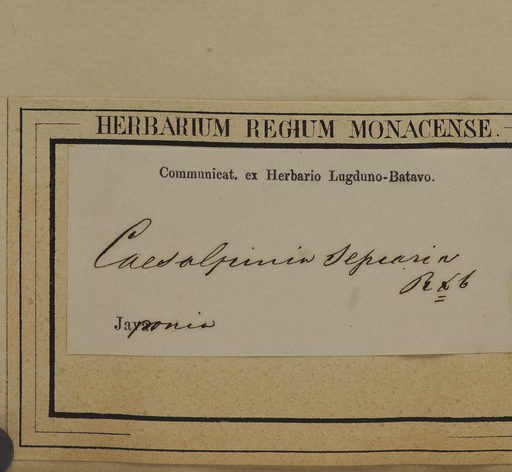 HERBARIUM REGIUM MONACENSE.
Communicat. ex Herbario Lugduno-Batavo.
Caesalpinia sepiaria
Rxb
Japonia